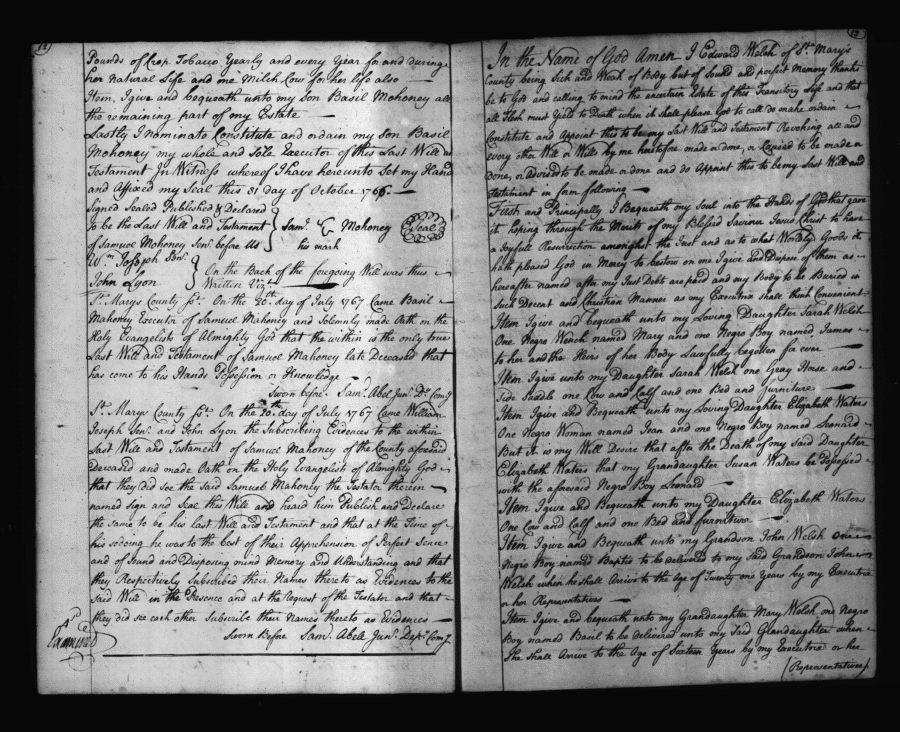 12
Pounds of Crop Tobacco Yearly and every Year for and during
her natural Life and one Milch Cow for her life also
Item, I give and bequeath unto my Son Basil Mohoney all
the remaining part of my Estate
Lastly I nominate Constitute and ordain my Son Basil
Mohoney my whole and Sole Executor of this Last Will
Testament In Witness whereof I have hereunto Set my Hand
and Affixed my Seal this 31 day of October 1766
Signed Sealed Published & Declared
to be the Last Will and Testament
of Samuel Mohoney Senr. before Us
Saml. Mohoney Seal
his mark
Wm Joseph Senr.
John Lyon
On the Back of the foregoing Will was thus
Written Vizt.
St. Marys County Sct. On the 20th day of July 1767 Came Basil
Mahoney Executor of Samuel Mahoney and Solemnly made Oath on the
Holy Evangelist of Almighty God that the within is the only true
Last Will and Testament of Samuel Mahoney late Deceased that
has come to his Hands Possession or Knowledge
Sworn before Saml. Abel Junr. Dy. Comy
St. Marys County Sct. On the 20th day of July 1767 Came William
Joseph Senr. and John Lyon the Subscribing Evidences to the within
Last Will and Testament of Samuel Mahoney of the County aforesaid
Deceased and made Oath on the Holy Evangelists of Almighty God
that they did see the said Samuel Mahoney the Testator therein
named Sign and Seal this Will and heard him Publish and Declare
the Same to be his last Will and Testament and that at the Time of
his sodoing he was to the best of their Apprehension of Perfect Sence
and of Sound and Disposing mind Memory and Understanding and that
they Respectively Subscribed their Names thereto as Evidences to the
Said Will in the Presence and at the Request of the Testator and that
they did see each other Subscribe their Names thereto as Evidences
Sworn Before Saml. Abell Junr. Depy. Comy
Examined
In the Name of God Amen I Edward Welsh of St. Mary's
County being Sick and Weak of Body but of Sound and perfect Memory thanks
be to God and calling to mind the uncertain Estate of this Transitory Life and that
all Flesh must Yield to Death when it shall please God to call do make ordain
Constitute and Appoint this to be my Last Will and Testament Revoking all and
every other Will or Wills by me heretofore made or done, or Caused to be made or
Done, or Advised to be made or done and do Appoint this to be my Last Will and
Testament in form following
First and Principally I Bequeath my Soul into the Hands of God that gave
it hoping through the Merits of my Blessed Saviour Jesus Christ to have
a Joyfull Resurrection amonghst the Just and as to what Worldly Goods it
hath pleased God in Mercy to bestow on me I give and Dispose of them as
hereafter named after my Just Debts are paid and my Body to be Buried in
Such Decent and Christian Manner as my Executrix shall think Convenient
Item I give and bequeath unto my Loving Daughter Sarah Welsh
One Negro Wench named Mary and one Negro Boy named James
to her and the Heirs of her Body Lawfully begotten for ever
Item I give unto my Daughter Sarah Welsh one Gray Horse and
Side Saddle one Cow and Calf and one Bed and furniture
Item I give and Bequeath unto my Loving Daughter Elizabeth Waters
One Negro Woman named Jean and one Negro Boy named Leonard
But it is my Will Desire that after the Death of my Said Daughter
Elizabeth Waters that my Grandaughter Susan Waters be Possessed
with the aforesaid Negro Boy Leonard
Item I give and Bequeath unto my Daughter Elizabeth Waters
One Cow and Calf and one Bed and furniture
Item I give and Bequeath unto my Grandson John Welsh One
Negro Boy named Baptis to be delivered to my said Grandson John
Welsh when he Shall Arrive to the Age of Twenty one Years by my Executrix
or her Representatives
Item I give and bequeath unto my Grandaughter Mary Welsh one Negro
Boy named Basil to be delivered unto my Said Glandaughter when
She shall Arive to the Age of Sixteen Years by my Executrix or her
(Representatives)